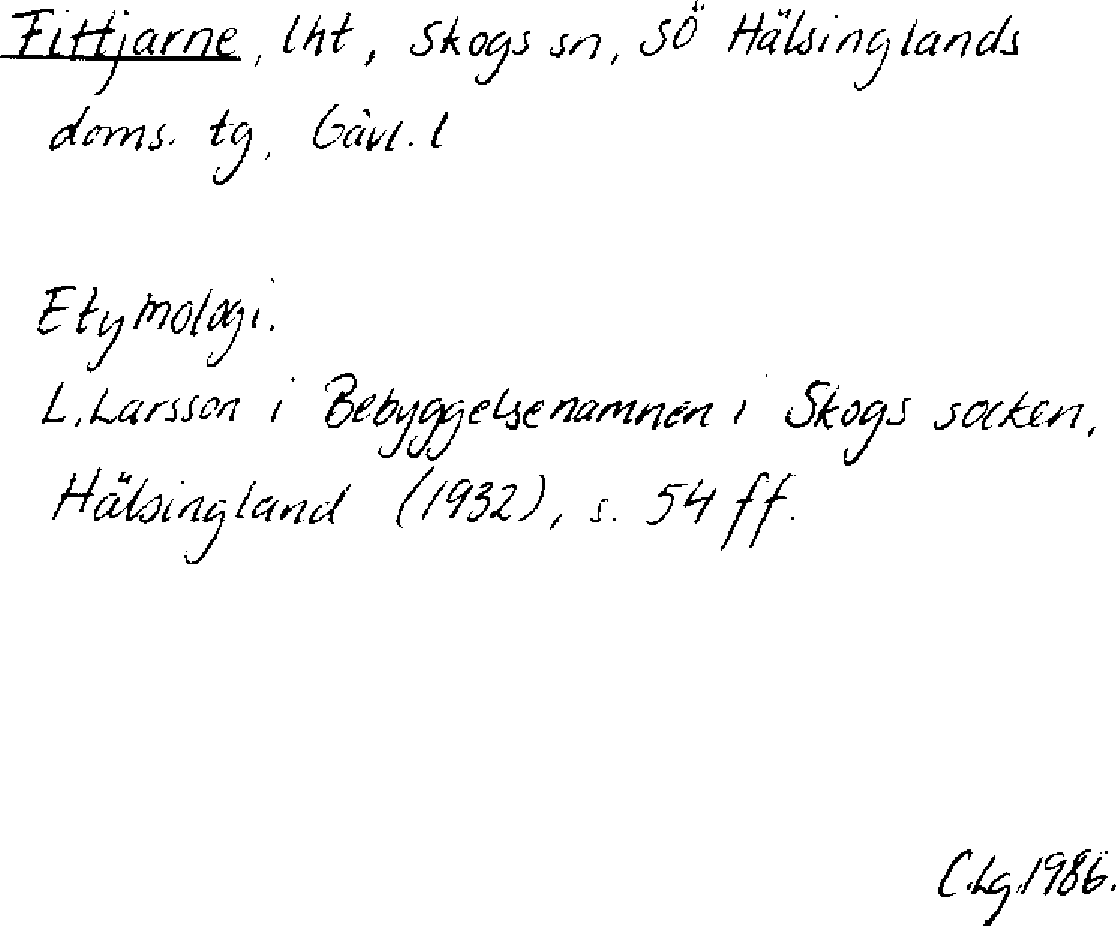 Fittjarne, lht, Skogs sn, SÖ Hälsinglands
doms. tg, Gävl. l
Etymologi.
L. Larsson i Bebyggelsenamnen i Skogs socken,
Hälsingland (1932), s. 54 ff.
C.Lg.1986.